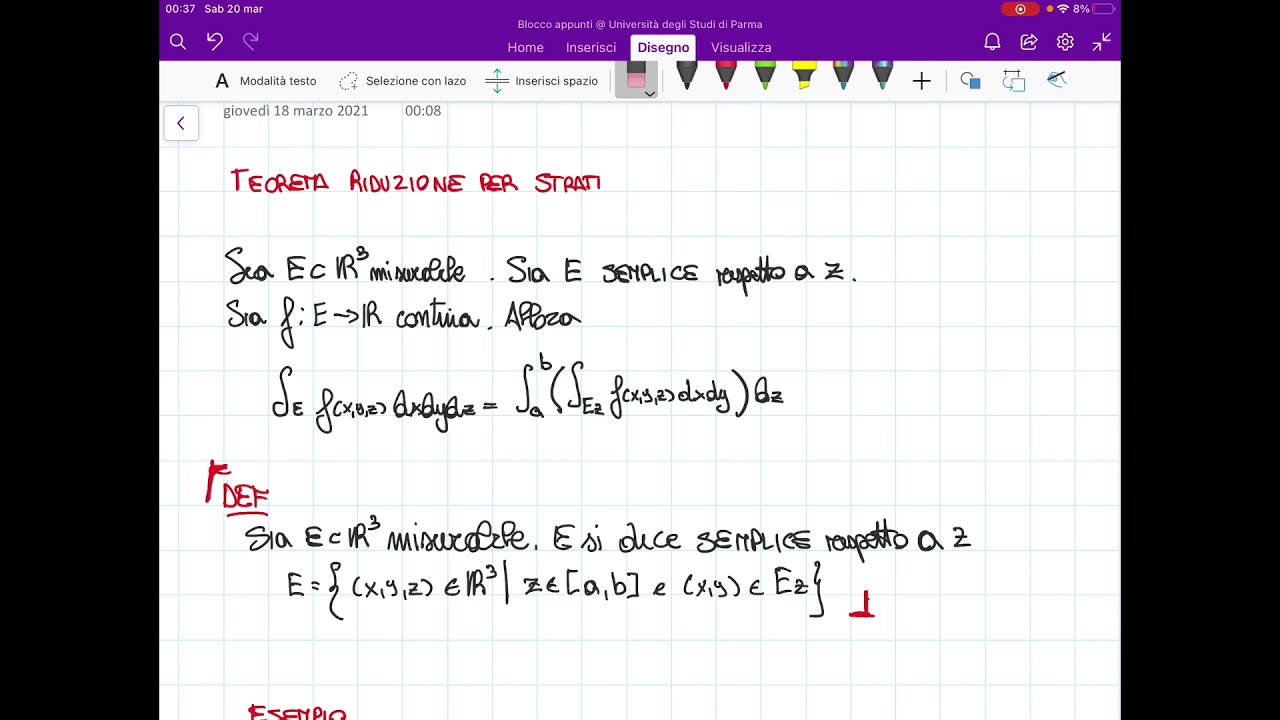 00:37 Sab 20 mar
8%
Blocco appunti @ Università degli Studi di Parma
Home Inserisci Disegno Visualizza
A Modalità testo Selezione con lazo Inserisci spazio
giovedì 18 marzo 2021 00:08
TEOREMA RIDUZIONE PER STRATI
Sia E⊂ℝ³ misurabile. Sia E SEMPLICE rispetto a z.
Sia f: E→ℝ continua. Allora
∫_E f(x,y,z) dxdydz = ∫_a^b (∫_{E_z} f(x,y,z) dxdy) dz
DEF
Sia E⊂ℝ³ misurabile. E si dice SEMPLICE rispetto a z
E = {(x,y,z) ∈ ℝ³ | z∈[a,b] e (x,y) ∈ E_z}
ESEMPIO